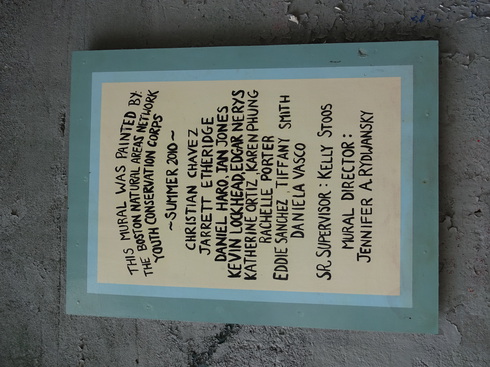 THIS MURAL WAS PAINTED BY:
THE BOSTON NATURAL AREAS NETWORK
YOUTH CONSERVATION CORPS
~SUMMER 2010~
CHRISTIAN CHAVEZ
JARRETT ETHERIDGE
DANIEL HARO, IAN JONES
KEVIN LOCKHEAD, EDGAR NERYS
KATHERINE ORTIZ, KAREN PHUNG
RACHELLE PORTER
EDDIE SANCHEZ TIFFANY SMITH
DANIELA VASCO
SR. SUPERVISOR: KELLY STOOS
MURAL DIRECTOR:
JENNIFER A. RYDWANSKY